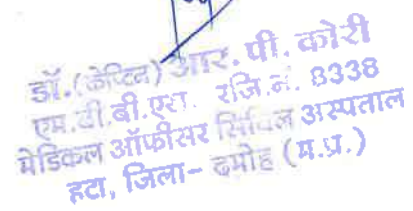 डॉ. (केप्टिन) आर. पी. कोरी
एम.बी.बी.एस. रजि.नं. 8338
मेडिकल ऑफीसर सिविल अस्पताल
हटा, जिला- दमोह (म.प्र.)